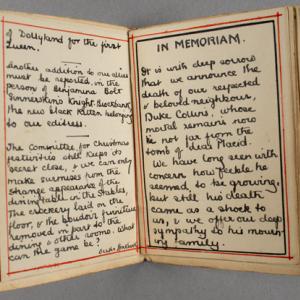 of Dollyland for the first
Queen.
Another addition to our allies
must be reported, in the
person of Benjamina Bolt
Knight
the new black Kitten belonging
to our editress.
The Committee for Christmas
festivities still keeps its
secrets close, & we can only
make surmises from the
strange appearance of the
dining table in the Stables,
The crockery laid on the
floor, & the boudoir furniture
removed in part to the
dining & other rooms. What
can the game be?
IN MEMORIAM.
It is with deep sorrow
that we announce the
death of our respected
& beloved neighbour,
Duke Collins, whose
mortal remains now
lie not far from the
tomb of dear Placid.
We have long seen with
concern how feeble he
seemed, to be growing,
but still his death
came as a shock to
us, & we offer our deep
sympathy to his mourn-
ing family.